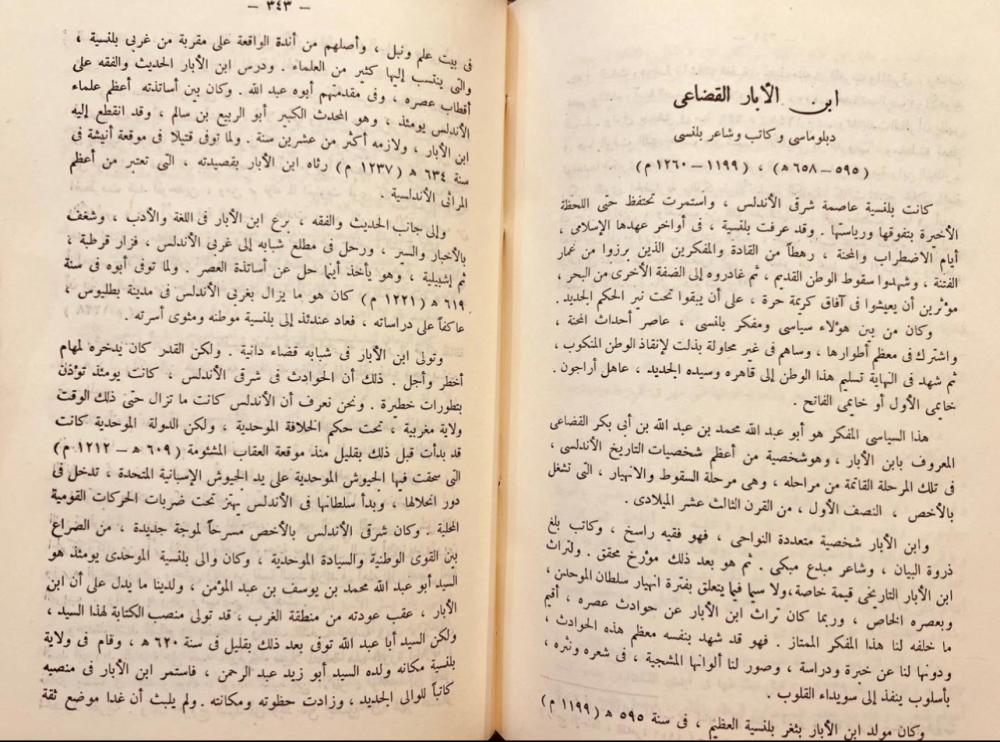 ابن الأبار القضاعى
دبلوماسى وكاتب وشاعر بلنسى
(٥٩٥–٦٥٨ ھ) ، (١١٩٩–١٢٦٠ م)
كانت بلنسية عاصمة شرقى الأندلس ، واستمرت تحتفظ حتى اللحظة
الأخيرة بتفوقها ورياستها . وقد عرفت بلنسية ، فى أواخر عهدها الإسلامى ،
أيام الاضطراب والمحنة ، رهطاً من القادة والمفكرين الذين برزوا من غمار
الفتنة ، وشهدوا سقوط الوطن القديم ، ثم غادروه إلى الضفة الأخرى من البحر ،
مؤثرين أن يعيشوا فى آفاق كريمة حرة ، على أن يبقوا تحت نير الحكم الجديد.
وكان من بين هؤلاء سياسى ومفكر بلنسى ، عاصر أحداث المحنة ،
واشترك فى معظم أطوارها ، وساهم فى غير محاولة بذلت لإنقاذ الوطن المنكوب ،
ثم شهد فى النهاية تسليم هذا الوطن إلى قاهره وسيده الجديد ، عاهل أراجون .
خايمى الأول أو خايمى الفاتح .
هذا السياسى المفكر هو أبو عبد الله محمد بن عبد الله بن أبى بكر القضاعى
المعروف بابن الأبار ، وهوشخصية من أعظم شخصيات التاريخ الأندلسى ،
فى تلك المرحلة القاتمة من مراحله ، وهى مرحلة السقوط والانهيار ، التى تشغل
بالأخص ، النصف الأول ، من القرن الثالث عشر الميلادى .
وابن الأبار شخصية متعددة النواحى ، فهو فقيه راسخ ، وكاتب بلغ
ذروة البيان ، وشاعر مبدع مبكى . ثم هو بعد ذلك مؤرخ محقق . ولتراث
ابن الأبار التاريخى قيمة خاصة،ولا سيما فيما يتعلق بفترة انهيار سلطان الموحدين
وبعصره الخاص ، وربما كان تراث ابن الأبار عن حوادث عصره ، أقيم
ما خلفه لنا هذا المفكر الممتاز . فهو قد شهد بنفسه معظم هذه الحوادث ،
ودونها لنا عن خبرة ودراسة ، وصور لنا ألوانها المشجية ، فى شعره ونثره ،
بأسلوب ينفذ إلى سويداء القلوب .
وكان مولد ابن الأبار بثغر بلنسية العظيم ، فى سنة ٥٩٥ ھ (١١٩٩ م)
— ٣٤٣ —
فى بيت علم ونبل ، وأصلهم من أندة الواقعة على مقربة من غربى بلنسية ،
والتى ينتسب إليها كثير من العلماء . ودرس ابن الأبار الحديث والفقه على
أقطاب عصره ، وفى مقدمتهم أبوه عبد الله . وكان بين أساتذته أعظم علماء
الأندلس يومئذ ، وهو المحدث الكبير أبو الربيع بن سالم ، وقد انقطع إليه
ابن الأبار ، ولازمه أكثر من عشرين سنة . ولما توفى قتيلا فى موقعة أنيشة فى
سنة ٦٣٤ ھ (١٢٣٧ م) رثاه ابن الأبار بقصيدته ، التى تعتبر من أعظم
المراثى الأندلسية .
وإلى جانب الحديث والفقه ، برع ابن الأبار فى اللغة والأدب ، وشغف
بالأخبار والسير ، ورحل فى مطلع شبابه إلى غربى الأندلس ، فزار قرطبة ،
ثم إشبيلية ، وهو يأخذ أينما حل عن أساتذة العصر . ولما توفى أبوه فى سنة
٦١٩ ھ (١٢٢١ م) كان هو ما يزال بغربى الأندلس فى مدينة بطليوس ،
عاكفاً على دراساته ، فعاد عندئذ إلى بلنسية موطنه ومثوى أسرته .
وتولى ابن الأبار فى شبابه قضاء دانية . ولكن القدر كان يدخره لمهام
أخطر وأجل . ذلك أن الحوادث فى شرقى الأندلس ، كانت يومئذ تؤذن
بتطورات خطيرة . ونحن نعرف أن الأندلس كانت ما تزال حتى ذلك الوقت
ولاية مغربية ، تحت حكم الخلافة الموحدية ، ولكن الدولة الموحدية كانت
قد بدأت قبل ذلك بقليل منذ موقعة العقاب المشئومة (٦٠٩ ھ – ١٢١٢ م)
التى سحقت فيها الجيوش الموحدية على يد الجيوش الإسبانية المتحدة ، تدخل فى
دور انحلالها ، وبدأ سلطانها فى الأندلس يهتز تحت ضربات الحركات القومية
المحلية . وكان شرقى الأندلس بالأخص مسرحاً لموجة جديدة ، من الصراع
بين القوى الوطنية والسيادة الموحدية ، وكان والى بلنسية الموحدى يومئذ هو
السيد أبو عبد الله محمد بن يوسف بن عبد المؤمن ، ولدينا ما يدل على أن ابن
الأبار ، عقب عودته من منطقة الغرب ، قد تولى منصب الكتابة لهذا السيد ،
ولكن السيد أبا عبد الله توفى بعد ذلك بقليل فى سنة ٦٢٠ ھ ، وقام فى ولاية
بلنسية مكانه ولده السيد أبو زيد عبد الرحمن ، فاستمر ابن الأبار فى منصبه
كاتباً للوالى الجديد ، وزادت حظوته ومكانته . ولم يلبث أن غدا موضع ثقة